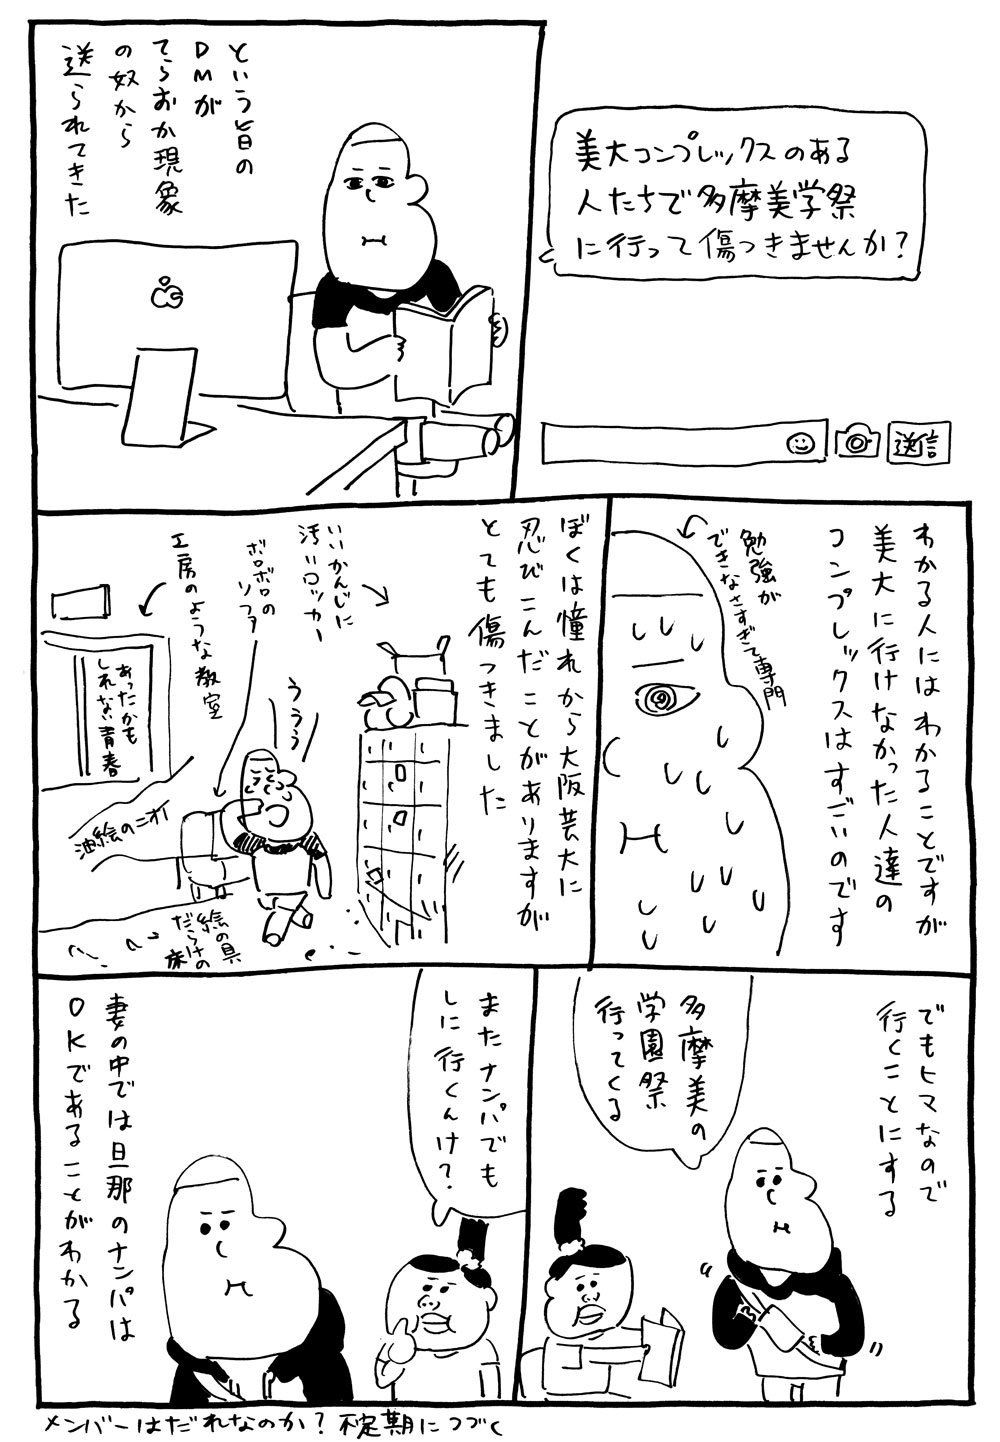 美大コンプレックスのある
人たちで多摩美学祭
に行って傷つきませんか？
送信
という旨の
DMが
てらおか現象
の奴から
送られてきた
わかる人にはわかることですが
美大に行けなかった人達の
コンプレックスはすごいのです
勉強が
できなさすぎて専門
ぼくは憧れから大阪芸大に
忍びこんだことがありますが
とても傷つきました
いいかんじに
汚いロッカー
ボロボロの
ソファ
工房のような教室
ううう
あったかも
しれない青春
油絵のニオイ
絵の具
だらけの
床
でもヒマなので
行くことにする
多摩美の
学園祭
行ってくる
またナンパでも
しに行くんけ？
妻の中では旦那のナンパは
OKであることがわかる
メンバーはだれなのか？不定期につづく